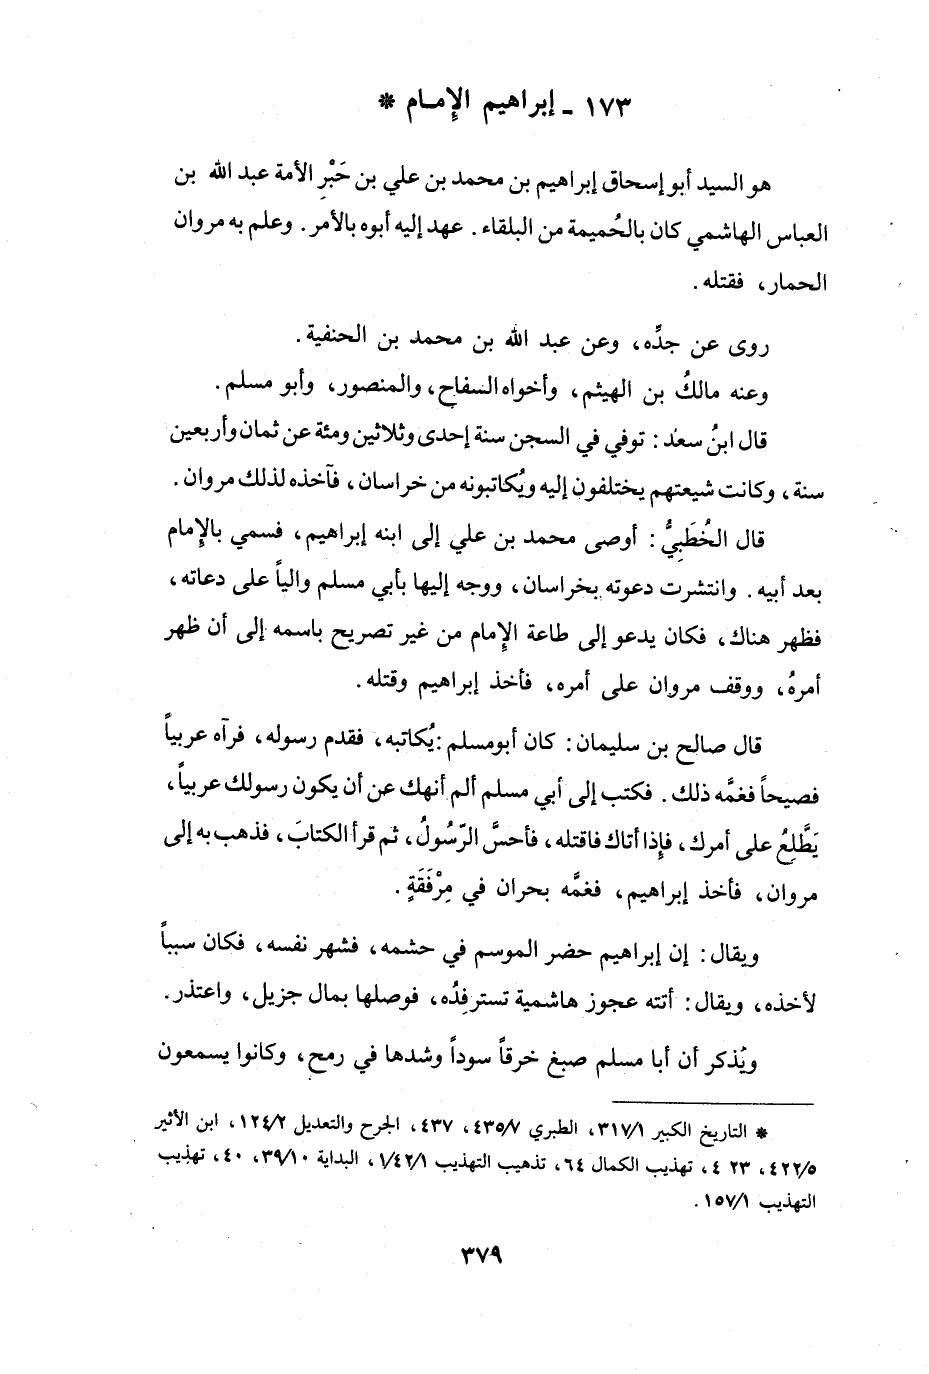 ١٧٣ ـ إبراهيم الإمام *
هو السيد أبو إسحاق إبراهيم بن محمد بن علي بن حَبْرِ الأمة عبد الله بن
العباس الهاشمي كان بالحُميمة من البلقاء . عهد إليه أبوه بالأمر . وعلم به مروان
الحمار، فقتله .
روى عن جدِّه، وعن عبد الله بن محمد بن الحنفية .
وعنه مالكُ بن الهيثم، وأخواه السفاح، والمنصور، وأبو مسلم .
قال ابنُ سعد : توفي في السجن سنة إحدى وثلاثين ومئة عن ثمان وأربعين
سنة، وكانت شيعتهم يختلفون إليه ويُكاتبونه من خراسان، فآخذه لذلك مروان .
قال الخُطَبِيُّ : أوصى محمد بن علي إلى ابنه إبراهيم، فسمي بالإمام
بعد أبيه . وانتشرت دعوته بخراسان، ووجه إليها بأبي مسلم والياً على دعاته،
فظهر هناك، فكان يدعو إلى طاعة الإمام من غير تصريح باسمه إلى أن ظهر
أمرهُ، ووقف مروان على أمره، فأخذ إبراهيم وقتله .
قال صالح بن سليمان : كان أبومسلم :يُكاتبه، فقدم رسوله، فرآه عربياً
فصيحاً فغمَّه ذلك . فكتب إلى أبي مسلم ألم أنهك عن أن يكون رسولك عربياً،
يَطَّلِعُ على أمرك، فإذا أتاك فاقتله، فأحسَّ الرّسُولُ، ثم قرأ الكتابَ، فذهب به إلى
مروان، فأخذ إبراهيم، فغمَّه بحران في مِرْفَقَةٍ .
ويقال : إن إبراهيم حضر الموسم في حشمه، فشهر نفسه، فكان سبباً
لأخذه، ويقال : أتته عجوز هاشمية تسترفِدُه، فوصلها بمال جزيل، واعتذر .
ويُذكر أن أبا مسلم صبغ خرقاً سوداً وشدها في رمح، وكانوا يسمعون
* التاريخ الكبير ٣١٧/١، الطبري ٤٣٥/٧، ٤٣٧، الجرح والتعديل ١٢٤/٢، ابن الأثير
٤٢٢/٥، ٢٣ ٤، تهذيب الكمال ٦٤، تذهيب التهذيب ١/٤٢/١، البداية ٣٩/١٠، ٤٠، تهذيب
التهذيب ١٥٧/١ .
٣٧٩